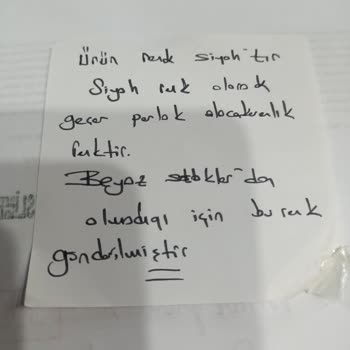 Ürün renk siyah'tır
Siyah renk olarak
geçer parlak abcakverlık
renktir.
Beyaz stoklar'da
olmadığı için bu renk
gönderilmiştir